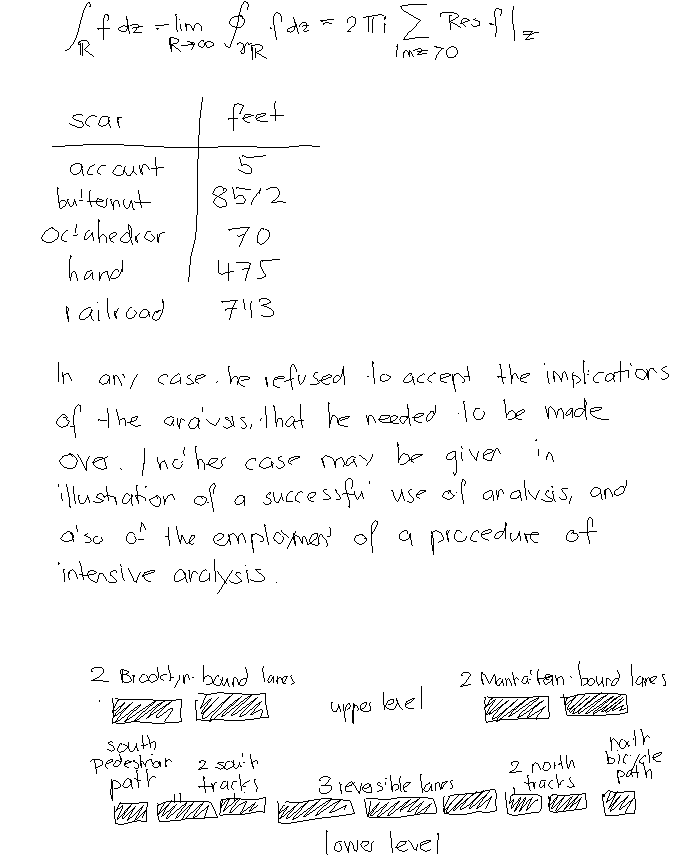 ∫_ℝ f dz = lim_{R→∞} ∮_{γR} f dz = 2πi ∑_{Im z>0} Res f|_z
scar feet
account 5
butternut 85/2
octahedron 70
hand 475
railroad 743
In any case he refused to accept the implications
of the analysis, that he needed to be made
over. Another case may be given in
illustration of a successful use of analysis, and
also of the employment of a procedure of
intensive analysis.
2 Brooklyn-bound lanes 2 Manhattan-bound lanes
upper level
south pedestrian path
2 south tracks
3 reversible lanes
2 north tracks
north bicycle path
lower level